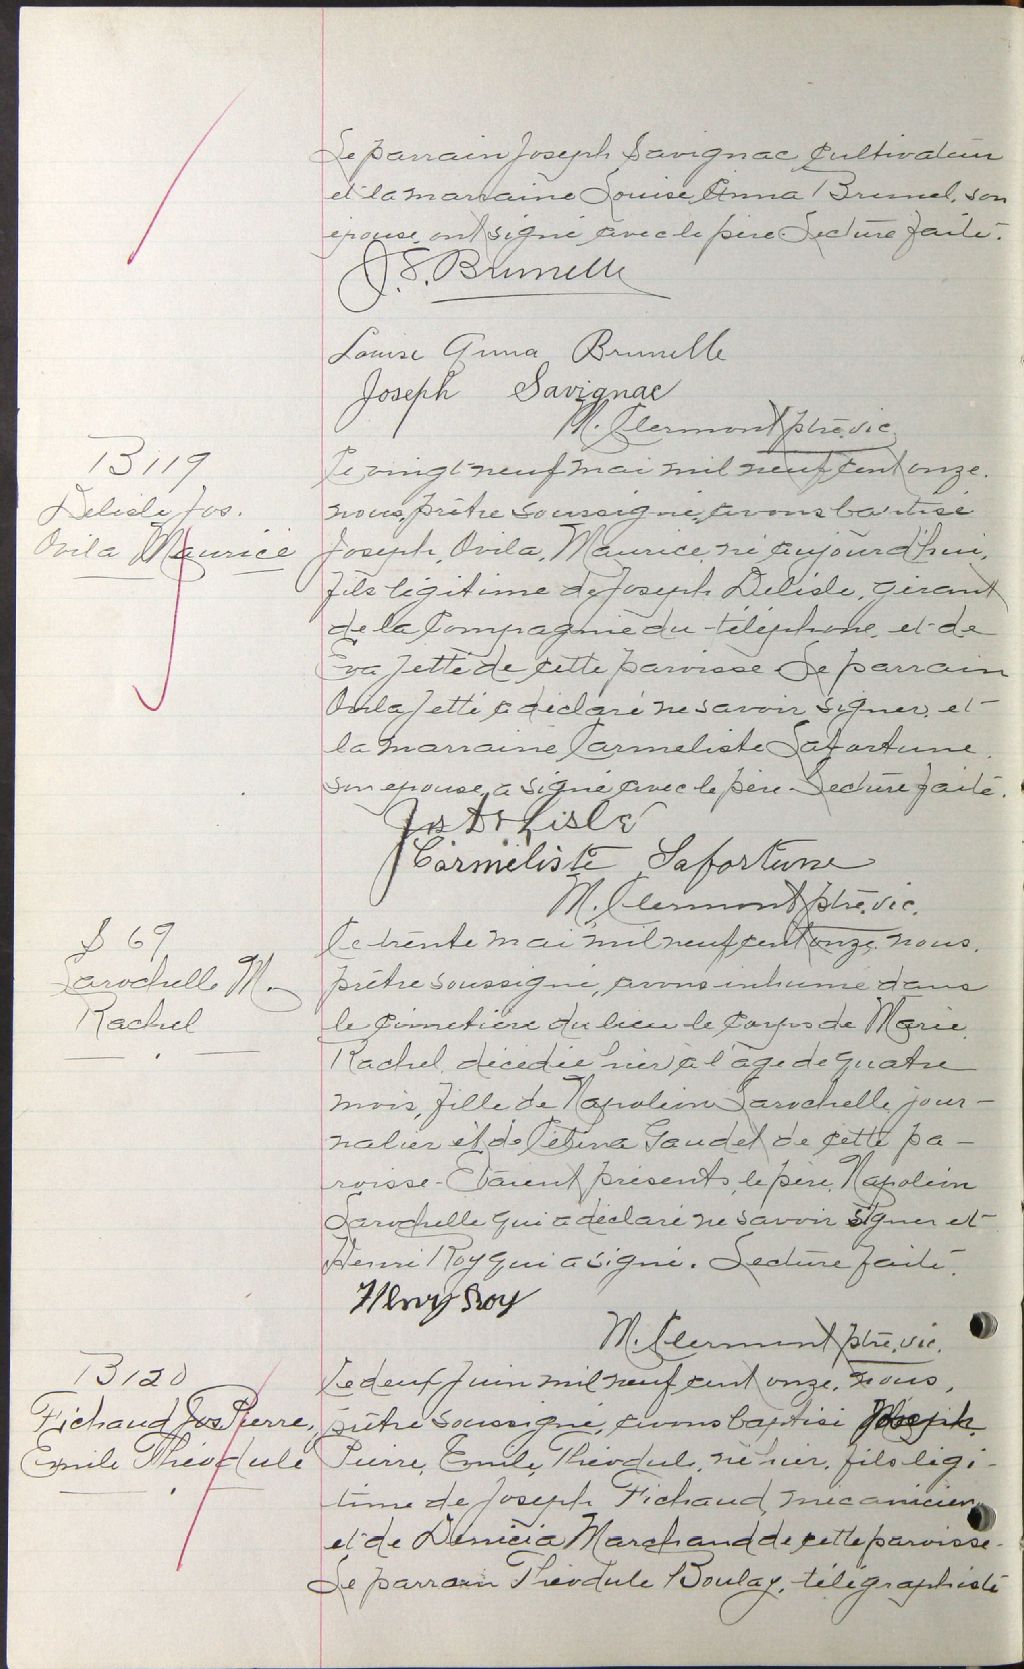 Le parrain Joseph Savignac cultivateur
et la marraine Louise Anna Brunel, son
épouse ont signé avec le père Lecture faite.
J. S. Brunelle
Louise Anna Brunelle
Joseph Savignac
M. Clermont ptre. vic.
B 119
Delisle Jos.
Ovila Maurice
Le vingt neuf mai mil neuf cent onze.
nous, prêtre soussigné, avons baptisé
Joseph, Ovila, Maurice, né aujourd'hui,
fils légitime de Joseph Delisle, gérant
de la Compagnie du téléphone, et de
Eva Jetté de cette paroisse Le parrain
Ovila Jetté a déclaré ne savoir signer, et
la marraine Carmeliste Lafortune
son épouse, a signé avec le père - Lecture faite.
Jos DeLisle
Carméliste Lafortune
M. Clermont ptre. vic.
S 69
Larochelle M.
Rachel
Le trente mai mil neuf cent onze, nous,
prêtre soussigné, avons inhumé dans
le cimetière du lieu le corps de Marie
Rachel, décédée hier à l'âge de quatre
mois, fille de Napoléon Larochelle, jour-
nalier et de Célina Gaudet de cette pa-
roisse - Étaient présents, le père, Napoléon
Larochelle qui a déclaré ne savoir signer et
Henri Roy qui a signé. Lecture faite.
Henry Roy
M. Clermont ptre. vic.
B 120
Fichaud Jos Pierre,
Emile Théodule
Le deux juin mil neuf cent onze, nous,
prêtre soussigné, avons baptisé Joseph,
Pierre, Emile, Théodule, né hier, fils légi-
time de Joseph Fichaud, mécanicien,
et de Marchand de cette paroisse -
Le parrain Théodule Boulay, télégraphiste